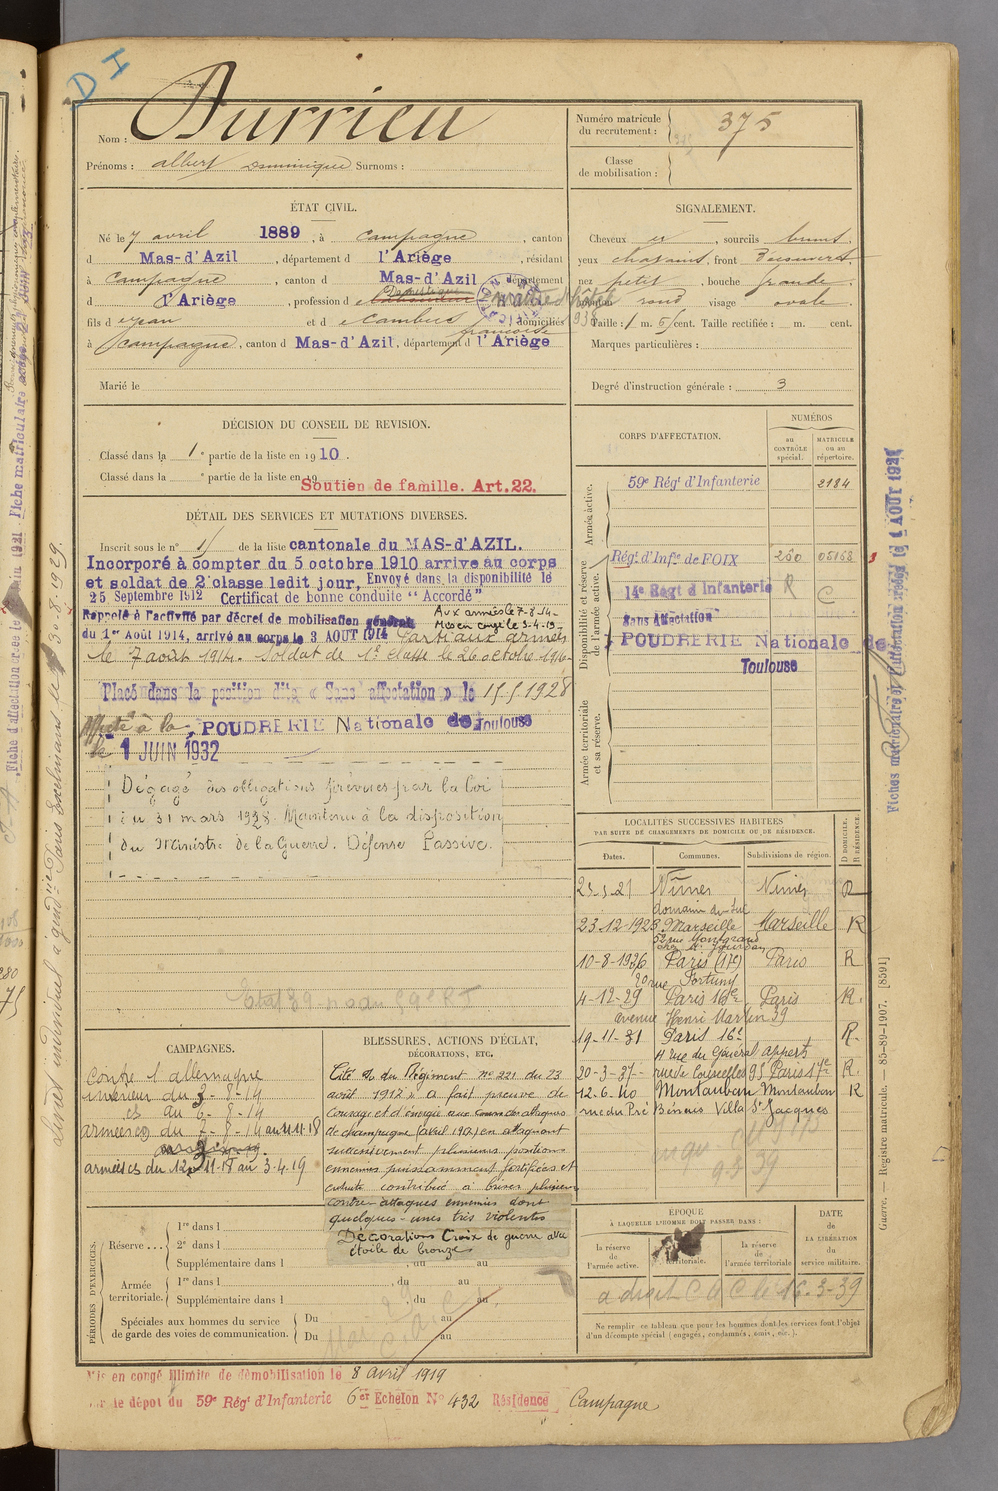 D I
Nom : Durrieu
Prénoms : albert Dominique Surnoms :
Numéro matricule du recrutement : 375
Classe de mobilisation :
ÉTAT CIVIL.
Né le 7 avril 1889, à campagne, canton
d Mas-d'Azil, département d l'Ariège, résidant
à campagne, canton d Mas-d'Azil département
d l'Ariège, profession d Domestique
fils d jean et d Cambus françoise domiciliés
à Campagne, canton d Mas-d'Azil, département d l'Ariège
Marié le
SIGNALEMENT.
Cheveux, sourcils bruns,
yeux chatains, front Découvert,
nez petit, bouche grande,
menton rond visage ovale.
Taille : 1 m. cent. Taille rectifiée : m. cent.
Marques particulières :
Degré d'instruction générale : 3
DÉCISION DU CONSEIL DE REVISION.
Classé dans la 1e partie de la liste en 1910.
Classé dans la e partie de la liste en 19
Soutien de famille. Art. 22.
DÉTAIL DES SERVICES ET MUTATIONS DIVERSES.
Inscrit sous le n° de la liste cantonale du MAS-d'AZIL.
Incorporé à compter du 5 octobre 1910 arrivé au corps
et soldat de 2e classe ledit jour, Envoyé dans la disponibilité le
25 Septembre 1912 Certificat de bonne conduite "Accordé"
Rappelé à l'activité par décret de mobilisation générale
Aux armées le 7-8-14-
Mis en congé le 3-4-19-
du 1er Août 1914, arrivé au corps le 3 AOUT 1914 Parti aux armées
le 7 août 1914. Soldat de 1e classe le 26 octobre 1916
Placé dans la position dite « Sans affectation » le 15-5-1928
Affecté à la POUDRERIE Nationale de Toulouse
le 1 JUIN 1932
Dégagé des obligations prévues par la loi
du 31 mars 1928. Maintenu à la disposition
du Ministre de la Guerre. Défense Passive.
CORPS D'AFFECTATION.
NUMÉROS
au CONTRÔLE spécial.
MATRICULE ou au répertoire.
Armée active.
59e Régt d'Infanterie 2184
Disponibilité et réserve de l'armée active.
Régt d'Infie de FOIX 250 05168
14e Régt d'Infanterie R C
Sans Affectation
POUDRERIE Nationale de
Toulouse
Armée territoriale et sa réserve.
LOCALITÉS SUCCESSIVES HABITÉES
PAR SUITE DE CHANGEMENTS DE DOMICILE OU DE RÉSIDENCE.
Dates. Communes. Subdivisions de région. D DOMICILE. R RÉSIDENCE.
Nîmes Nîmes R
23-12-1923 Marseille Marseille R
10-8-1926 Paris (17e) Paris R
20 rue Fortuny
4-12-29 Paris 16e Paris R.
avenue Henri Martin 39
19-11-31 Paris 16e R.
11 rue du Général appert
20-3-37- rue de Courcelles 95 Paris 17e R
12-6-40 Montauban Montauban R
rue du Pré Bénis Villa St Jacques
CAMPAGNES.
Contre l'allemagne
intérieur du 3-8-14
au 6-8-14
armées du 7-8-14 au 11.11.18
armées du 12-11-18 au 3-4-19
BLESSURES, ACTIONS D'ÉCLAT,
DÉCORATIONS, ETC.
Cité du Régiment n° 221 du 23
août 1917 "a fait preuve de
courage et d'énergie aux attaques
de champagne (avril 1917) en attaquant
successivement plusieurs positions
ennemies puissamment fortifiées et
ensuite contribué à briser plusieurs
contre-attaques ennemies dont
quelques-unes très violentes
Décorations Croix de guerre avec
étoile de bronze
PÉRIODES D'EXERCICES.
Réserve... 1re dans l
2e dans l
Supplémentaire dans l , du au
Armée territoriale. 1re dans l , du au
Supplémentaire dans l , du au
Spéciales aux hommes du service de garde des voies de communication. Du au
Du au
ÉPOQUE
À LAQUELLE L'HOMME DOIT PASSER DANS :
la réserve de l'armée active.
territoriale.
la réserve de l'armée territoriale
DATE
de LA LIBÉRATION
du service militaire.
16-3-39
Ne remplir ce tableau que pour les hommes dont les services font l'objet
d'un décompte spécial (engagés, condamnés, omis, etc.).
Mis en congé illimité de démobilisation le 8 avril 1919
par le dépôt du 59e Régt d'Infanterie 6er Echelon N° 432 Résidence Campagne
Guerre. — Registre matricule. — 85-89-1907. [8591]